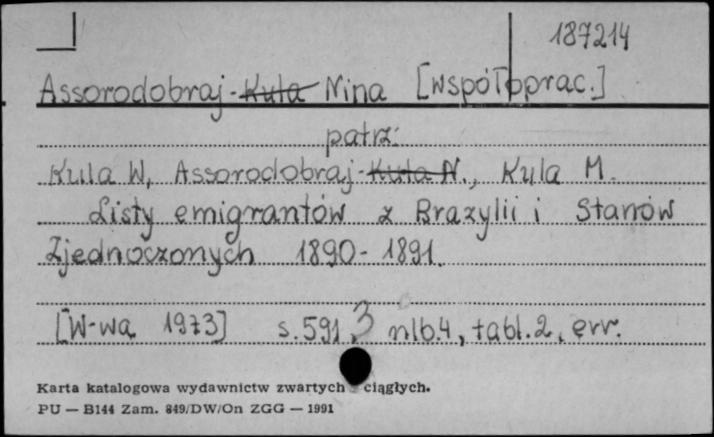 187214
Assorodobraj-Kula Nina [współoprac.]
patrz:
Kula W., Assorodobraj-Kula N., Kula M.
Listy emigrantów z Brazylii i Stanów
Zjednoczonych 1890-1891.
[W-wa 1973] s. 591, 3 nlb. 4, tabl. 2, err.
Karta katalogowa wydawnictw zwartych i ciągłych.
PU — B144 Zam. 849/DW/On ZGG — 1991